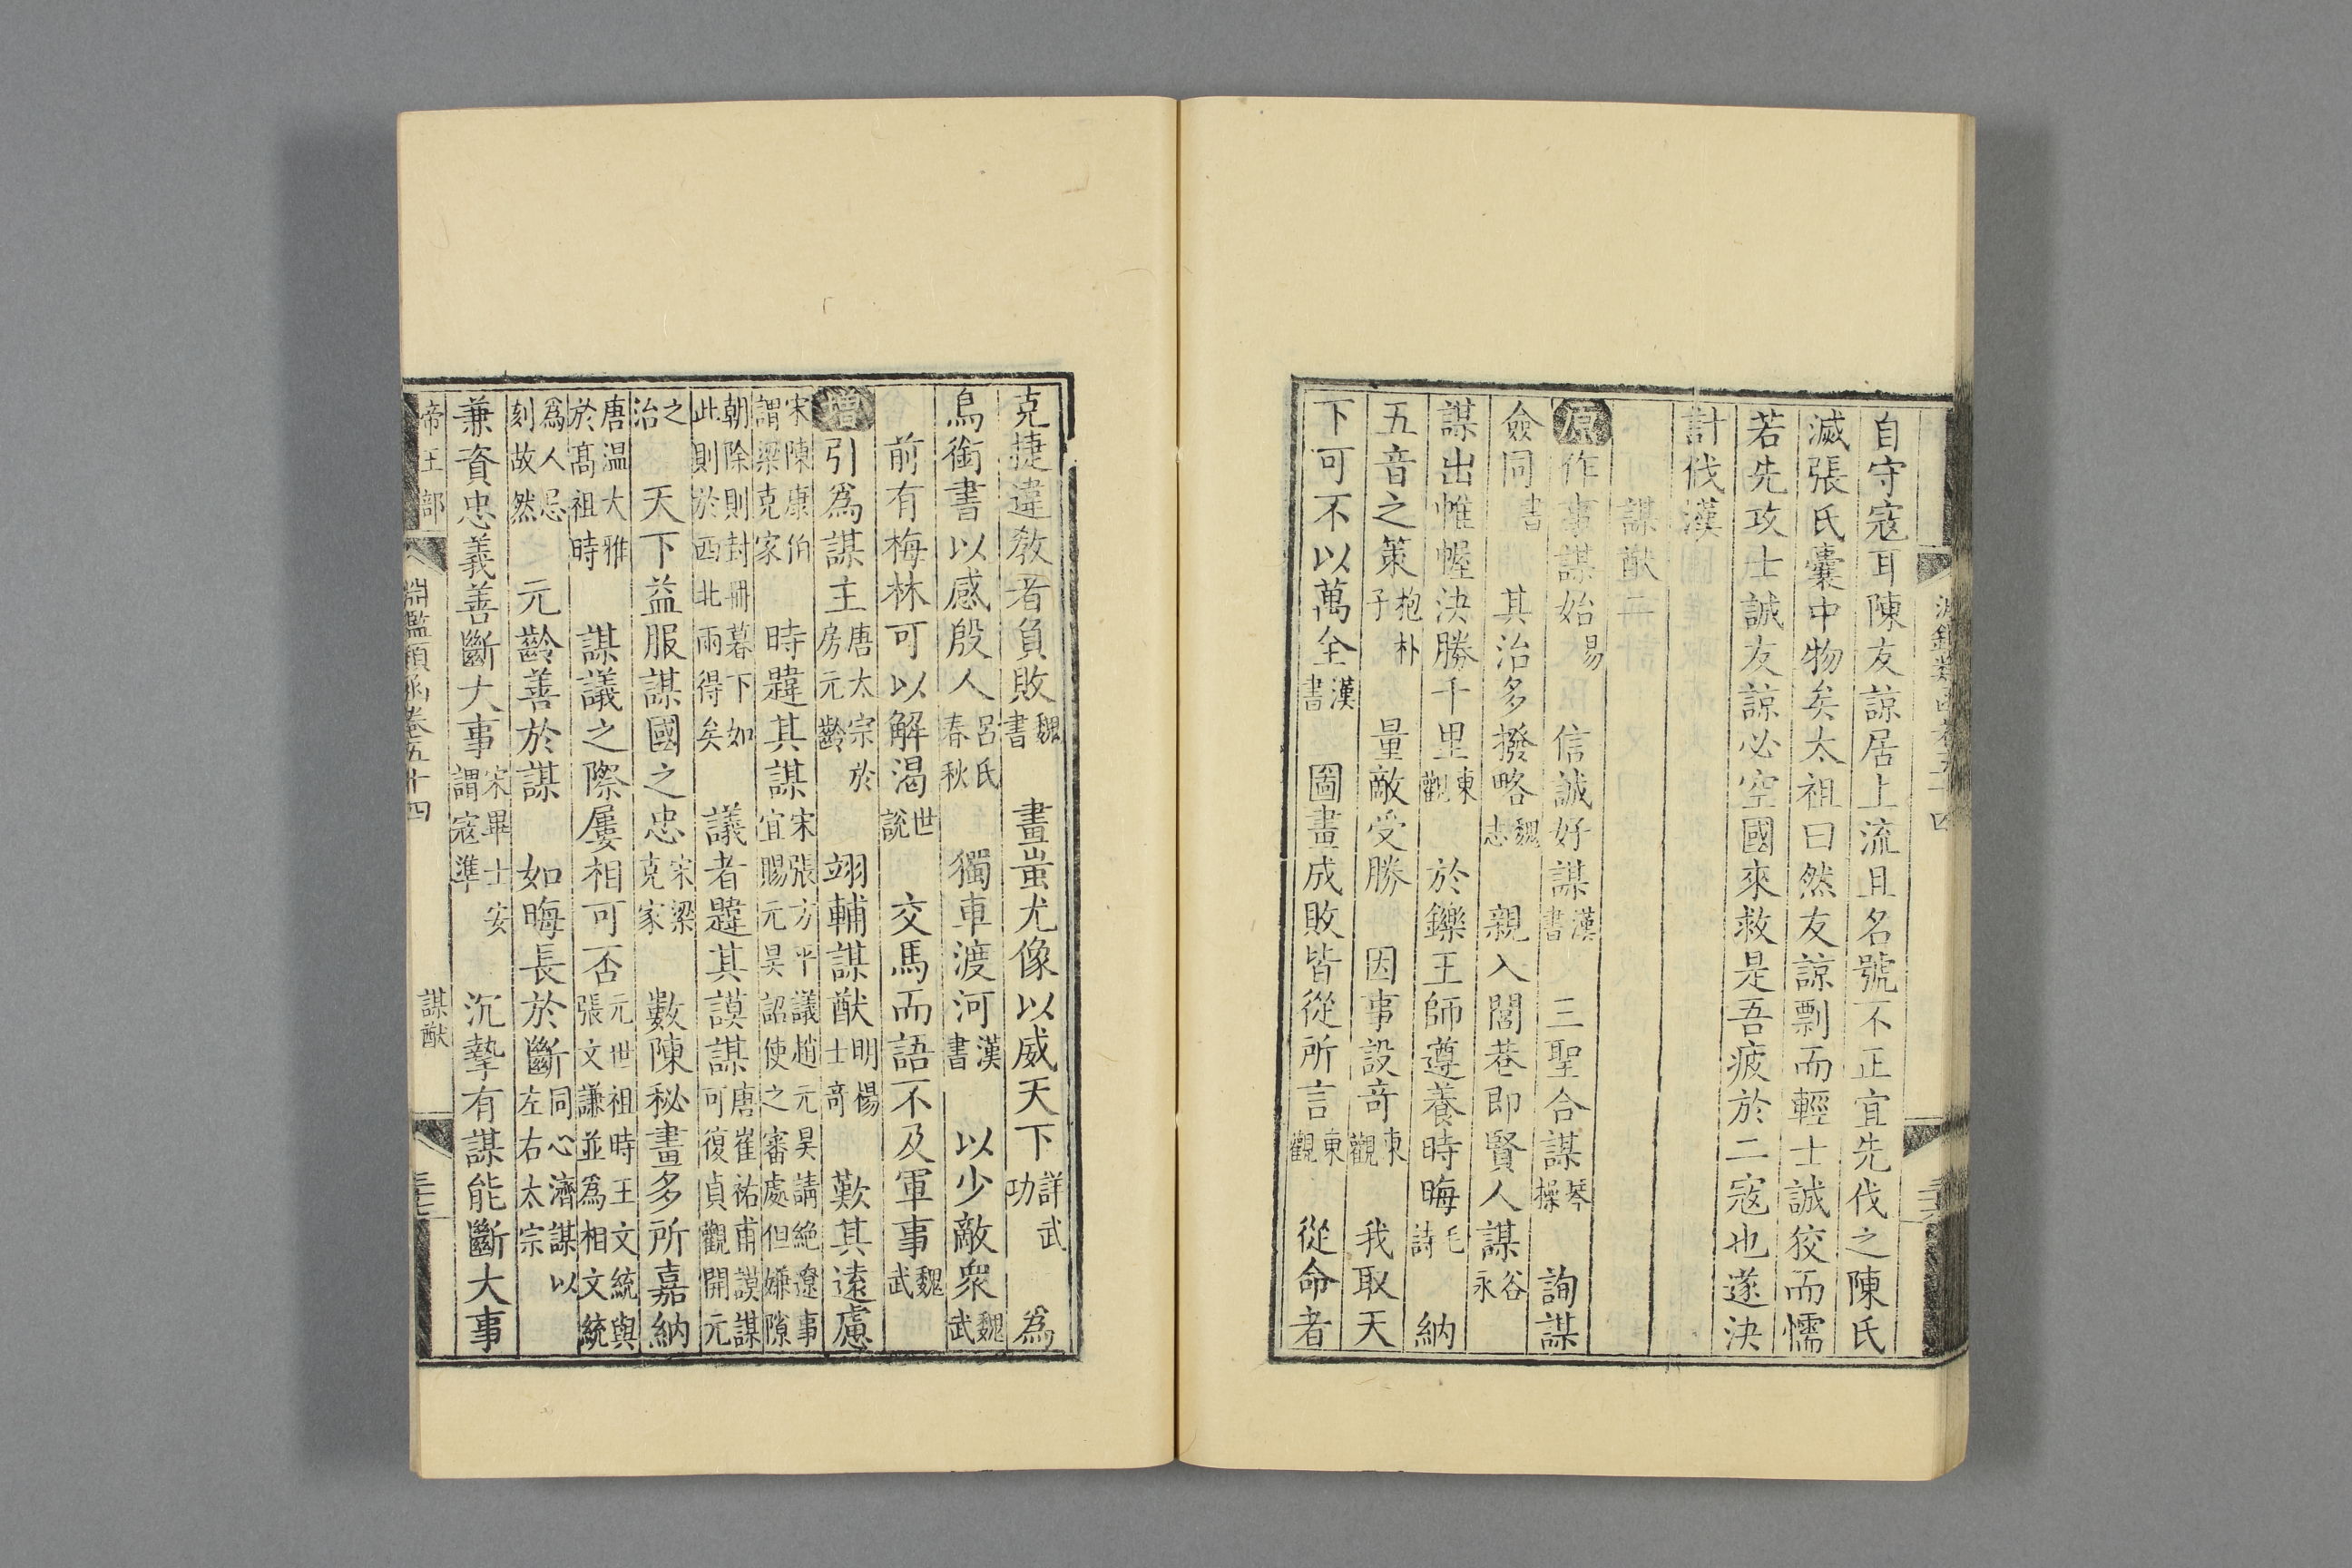 自守寇耳陳友諒居上流且名號不正宜先伐之陳氏
滅張氏囊中物矣太祖曰然友諒剽而輕士誠狡而懦
若先攻士誠友諒必空國來救是吾疲於二寇也遂決
計伐漢
謀猷
原作事謀始易 信誠好謀漢書 三聖合謀琴操 詢謀
僉同書 其治多撥略魏志 親入閭巷即賢人謀谷永
謀出帷幄決勝千里東觀 於鑠王師遵養時晦毛詩 納
五音之策抱朴子 量敵受勝 因事設奇東觀 我取天
下可不以萬全漢書 圖畫成敗皆從所言東觀 從命者
克捷違敎者負敗魏書 畫蚩尤像以威天下詳武功 爲
鳥銜書以感殷人呂氏春秋 獨車渡河漢書 以少敵衆魏武
前有梅林可以解渴世說 交馬而語不及軍事魏武
增引爲謀主唐太宗於房元齡 翊輔謀猷明楊士奇 歎其遠慮
宋陳康伯謂梁克家 時韙其謀宋張方平議趙元昊請絶遼事宜賜元昊詔使之審處但嫌隙
朝除則封冊暮下如此則於西北兩得矣 議者韙其謨謀唐崔祐甫謨謀可復貞觀開元
之治 天下益服謀國之忠宋梁克家 數陳秘畫多所嘉納
唐温大雅於髙祖時 謀議之際屢相可否元世祖時王文統與張文謙並爲相文統
爲人忌刻故然 元齡善於謀 如晦長於斷同心濟謀以左右太宗
兼資忠義善斷大事宋畢士安謂寇準 沉摯有謀能斷大事
帝王部 淵鑑類函卷五十四 謀猷